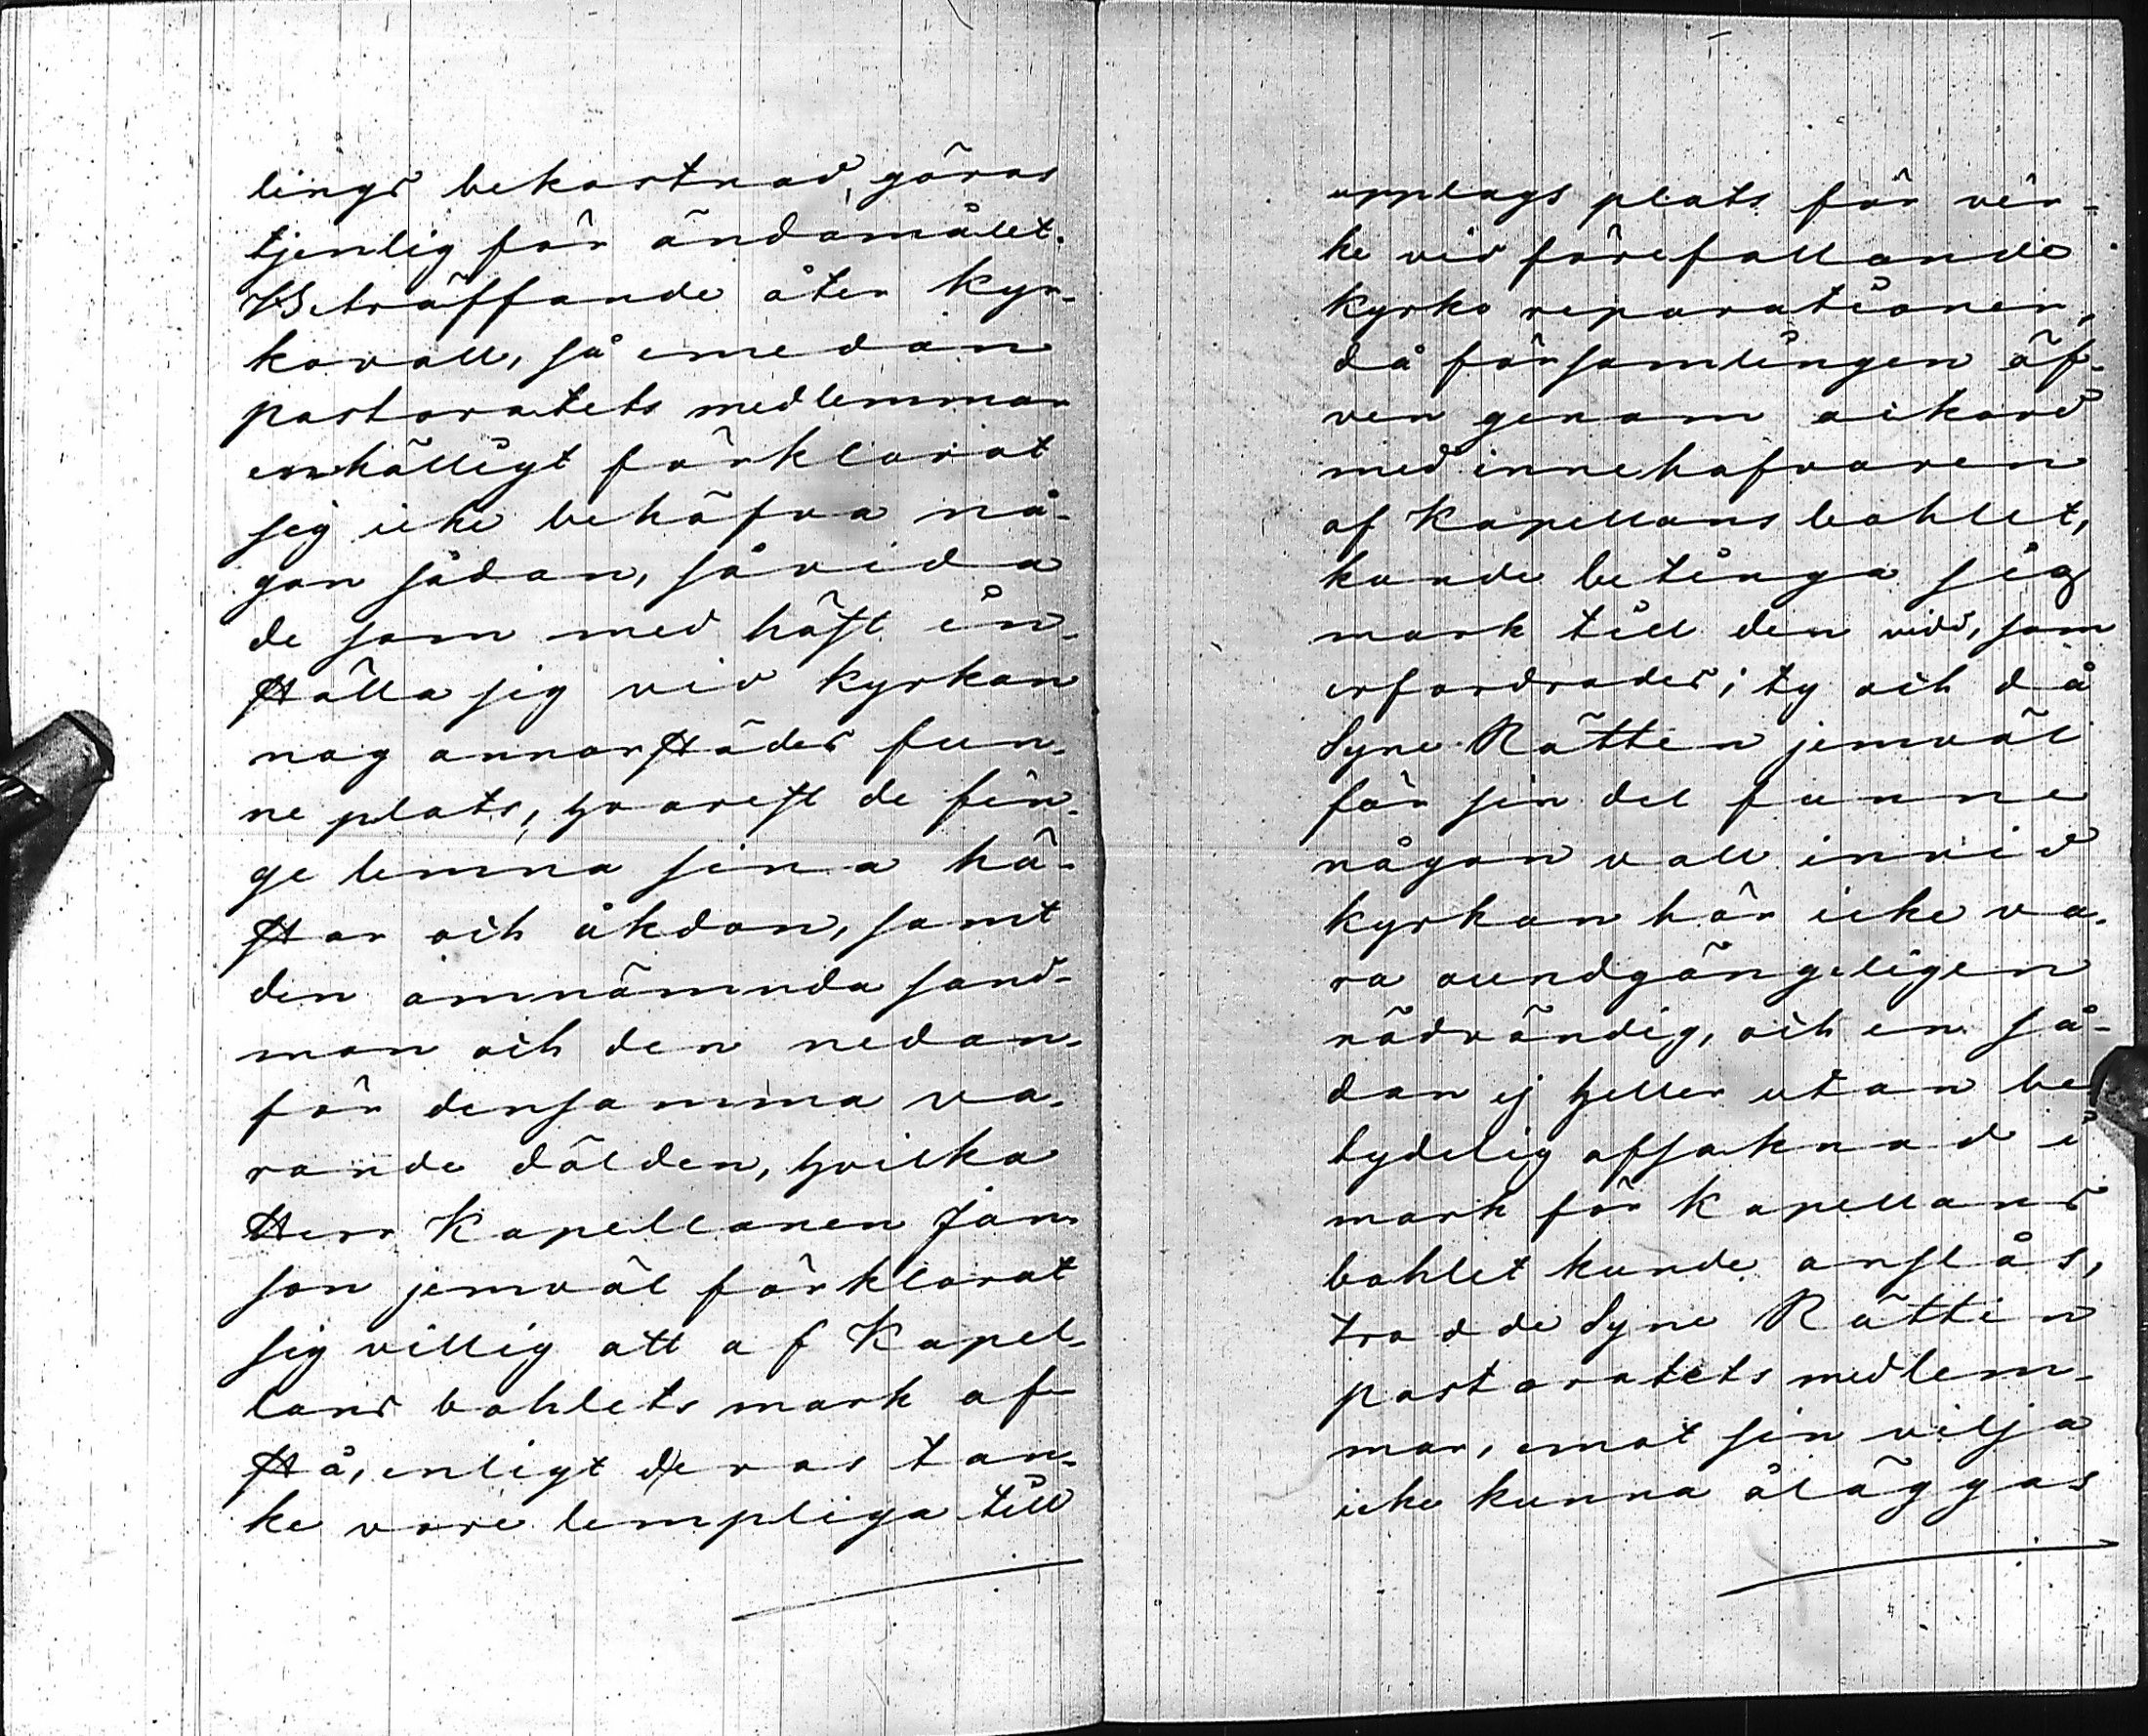 lings bekostnad, göras
tjenlig för ändamålet.
Beträffande åter Kyr-
kovall, så emedan
pastoratets medlemmar
enhälligt förklarat
sig icke behöfva nå-
gon sådan, såvida
de som med häst in-
ställa sig vid Kyrkan
nog annorstädes fun-
ne plats, hvarest de fin-
ge lemna sina hä-
star och åkdon, samt
den omnämnda sand-
mon och den nedan-
för densamma va-
rande dälden, hvilka
Herr Kapellanen Jan-
son jemväl förklarat
sig villig att af Kapel-
lans bohlets mark af-
stå, enligt deras tan-
ke vore lempliga till
upplags plats för vir-
ke vid förefallande
Kyrko reparationer,
då församlingen äf-
ven genom ackord
med innehafvaren
af Kapellans bohlet,
kunde betinga sig
mark till den vidd, som
erfordrades; ty och då
Syne Rätten jemväl
för sin del funne
någon vall invid
kyrkan här icke va-
ra oundgängeligen
nödvändig, och en så-
dan ej heller utan be-
tydelig afsaknad i
mark för Kapellans
bohlet kunde anslås,
trodde Syne Rätten
pastoratets medlem-
mar, emot sin vilja
icke kunna åläggas